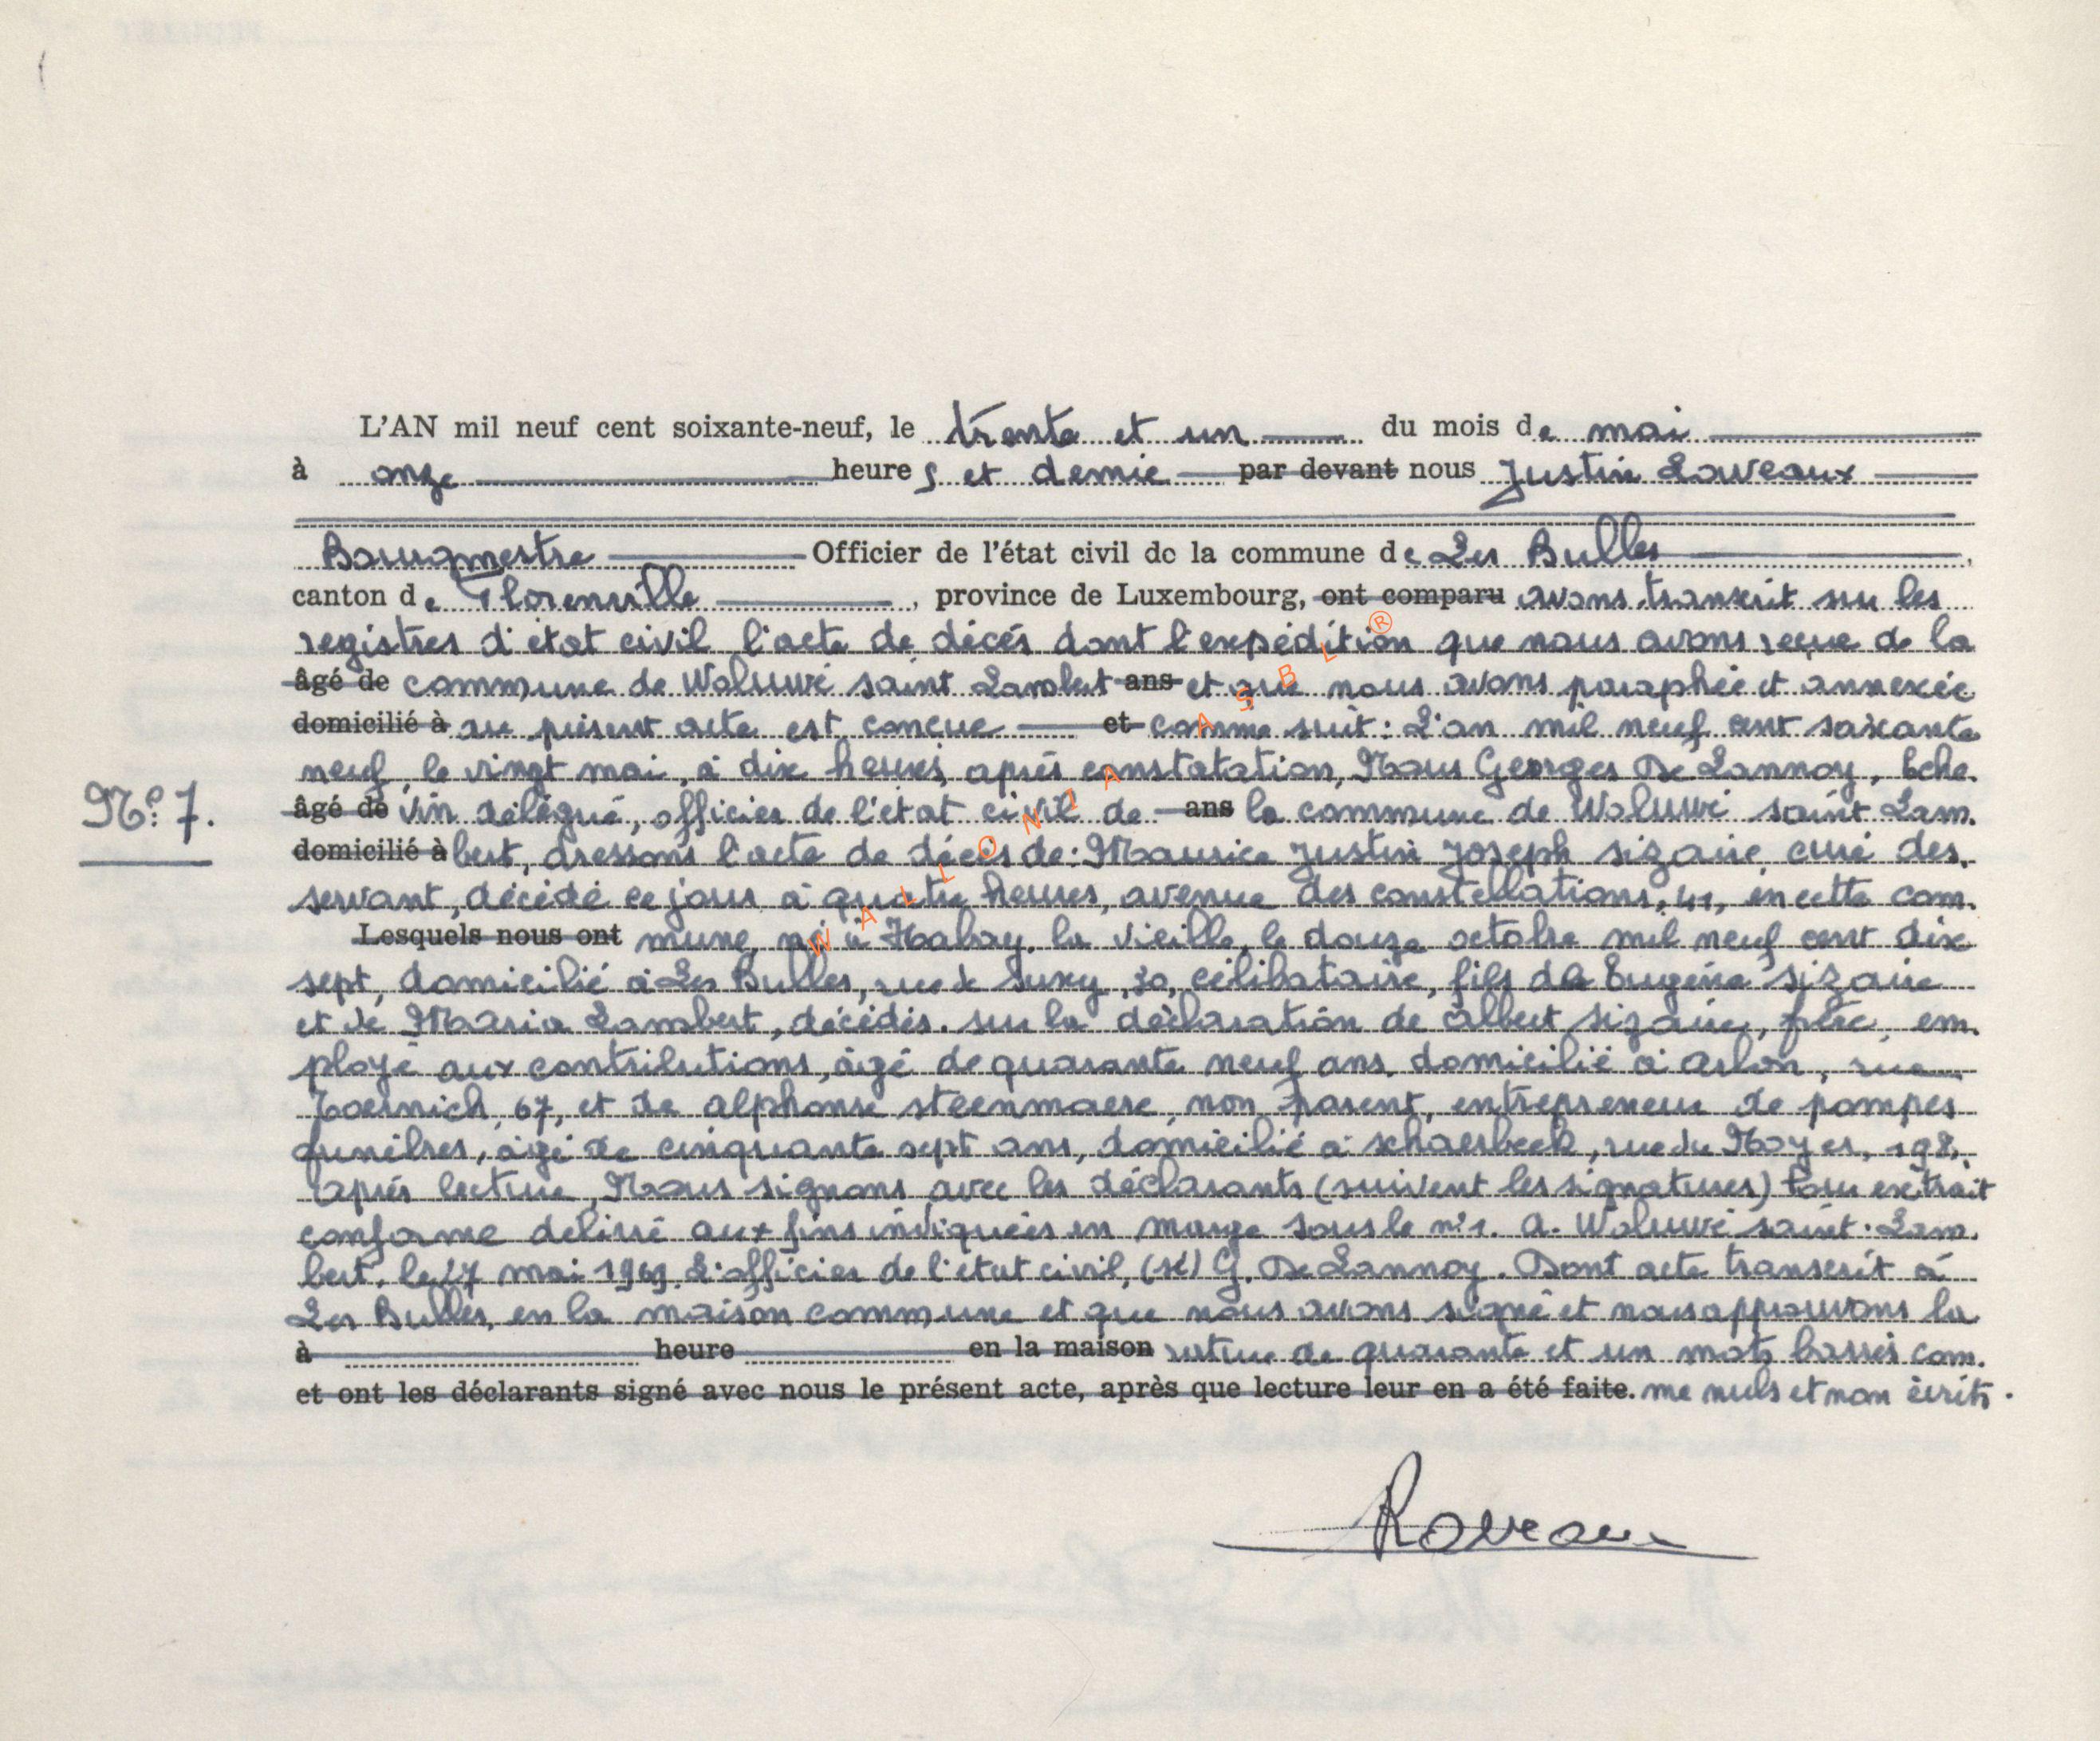 L'AN mil neuf cent soixante-neuf, le trente et un du mois de mai
à onze heures et demie par devant nous Justin Laveaux
Bourgmestre Officier de l'état civil de la commune de Les Bulles,
canton de Florenville, province de Luxembourg, ont comparu avons transcrit sur les
registres d'état civil l'acte de décès dont l'expédition que nous avons reçue de la
âgé de commune de Woluwé saint Lambert ans et que nous avons paraphée et annexée
domicilié à au présent acte est concue et comme suit : L'an mil neuf cent soixante
neuf, le vingt mai, à dix heures, après constatation, Nous Georges De Lannoy, Eche.
N° 7.
âgé de vin délégué, officier de l'état civil de ans la commune de Woluwé saint Lam.
domicilié à bert, dressons l'acte de décès de : Maurice Justin Joseph Sizaire curé des.
servant, décédé ce jour à quatre heures, avenue des constellations, 41, en cette com.
Lesquels nous ont mune, né à Habay. la vieille, le douze octobre mil neuf cent dix
sept, domicilié à Les Bulles, rue de Suxy, 30, célibataire, fils de Eugène Sizaire
et de Maria Lambert, décédés. sur la déclaration de Albert Sizaire, frère, em.
ployé aux contributions, âgé de quarante neuf ans, domicilié à Arlon, rue
Toernich, 67, et de Alphonse Steenmaers, non parent, entrepreneur de pompes
funèbres, âgé de cinquante sept ans, domicilié à Schaerbeek, rue du Noyer, 198,
Après lecture, Nous signons avec les déclarants (suivent les signatures) Pour extrait
conforme délivré aux fins indiquées en marge sous le n° 1. A. Woluwé saint. Lam.
bert. le 27 mai 1969. L'officier de l'état civil, (sé) G. De Lannoy. Dont acte transcrit à
Les Bulles, en la maison commune et que nous avons signé et nous approuvons la
à heure en la maison rature de quarante et un mots barrés com.
et ont les déclarants signé avec nous le présent acte, après que lecture leur en a été faite. me nuls et non écrits.
WALLONIA ASBL ®